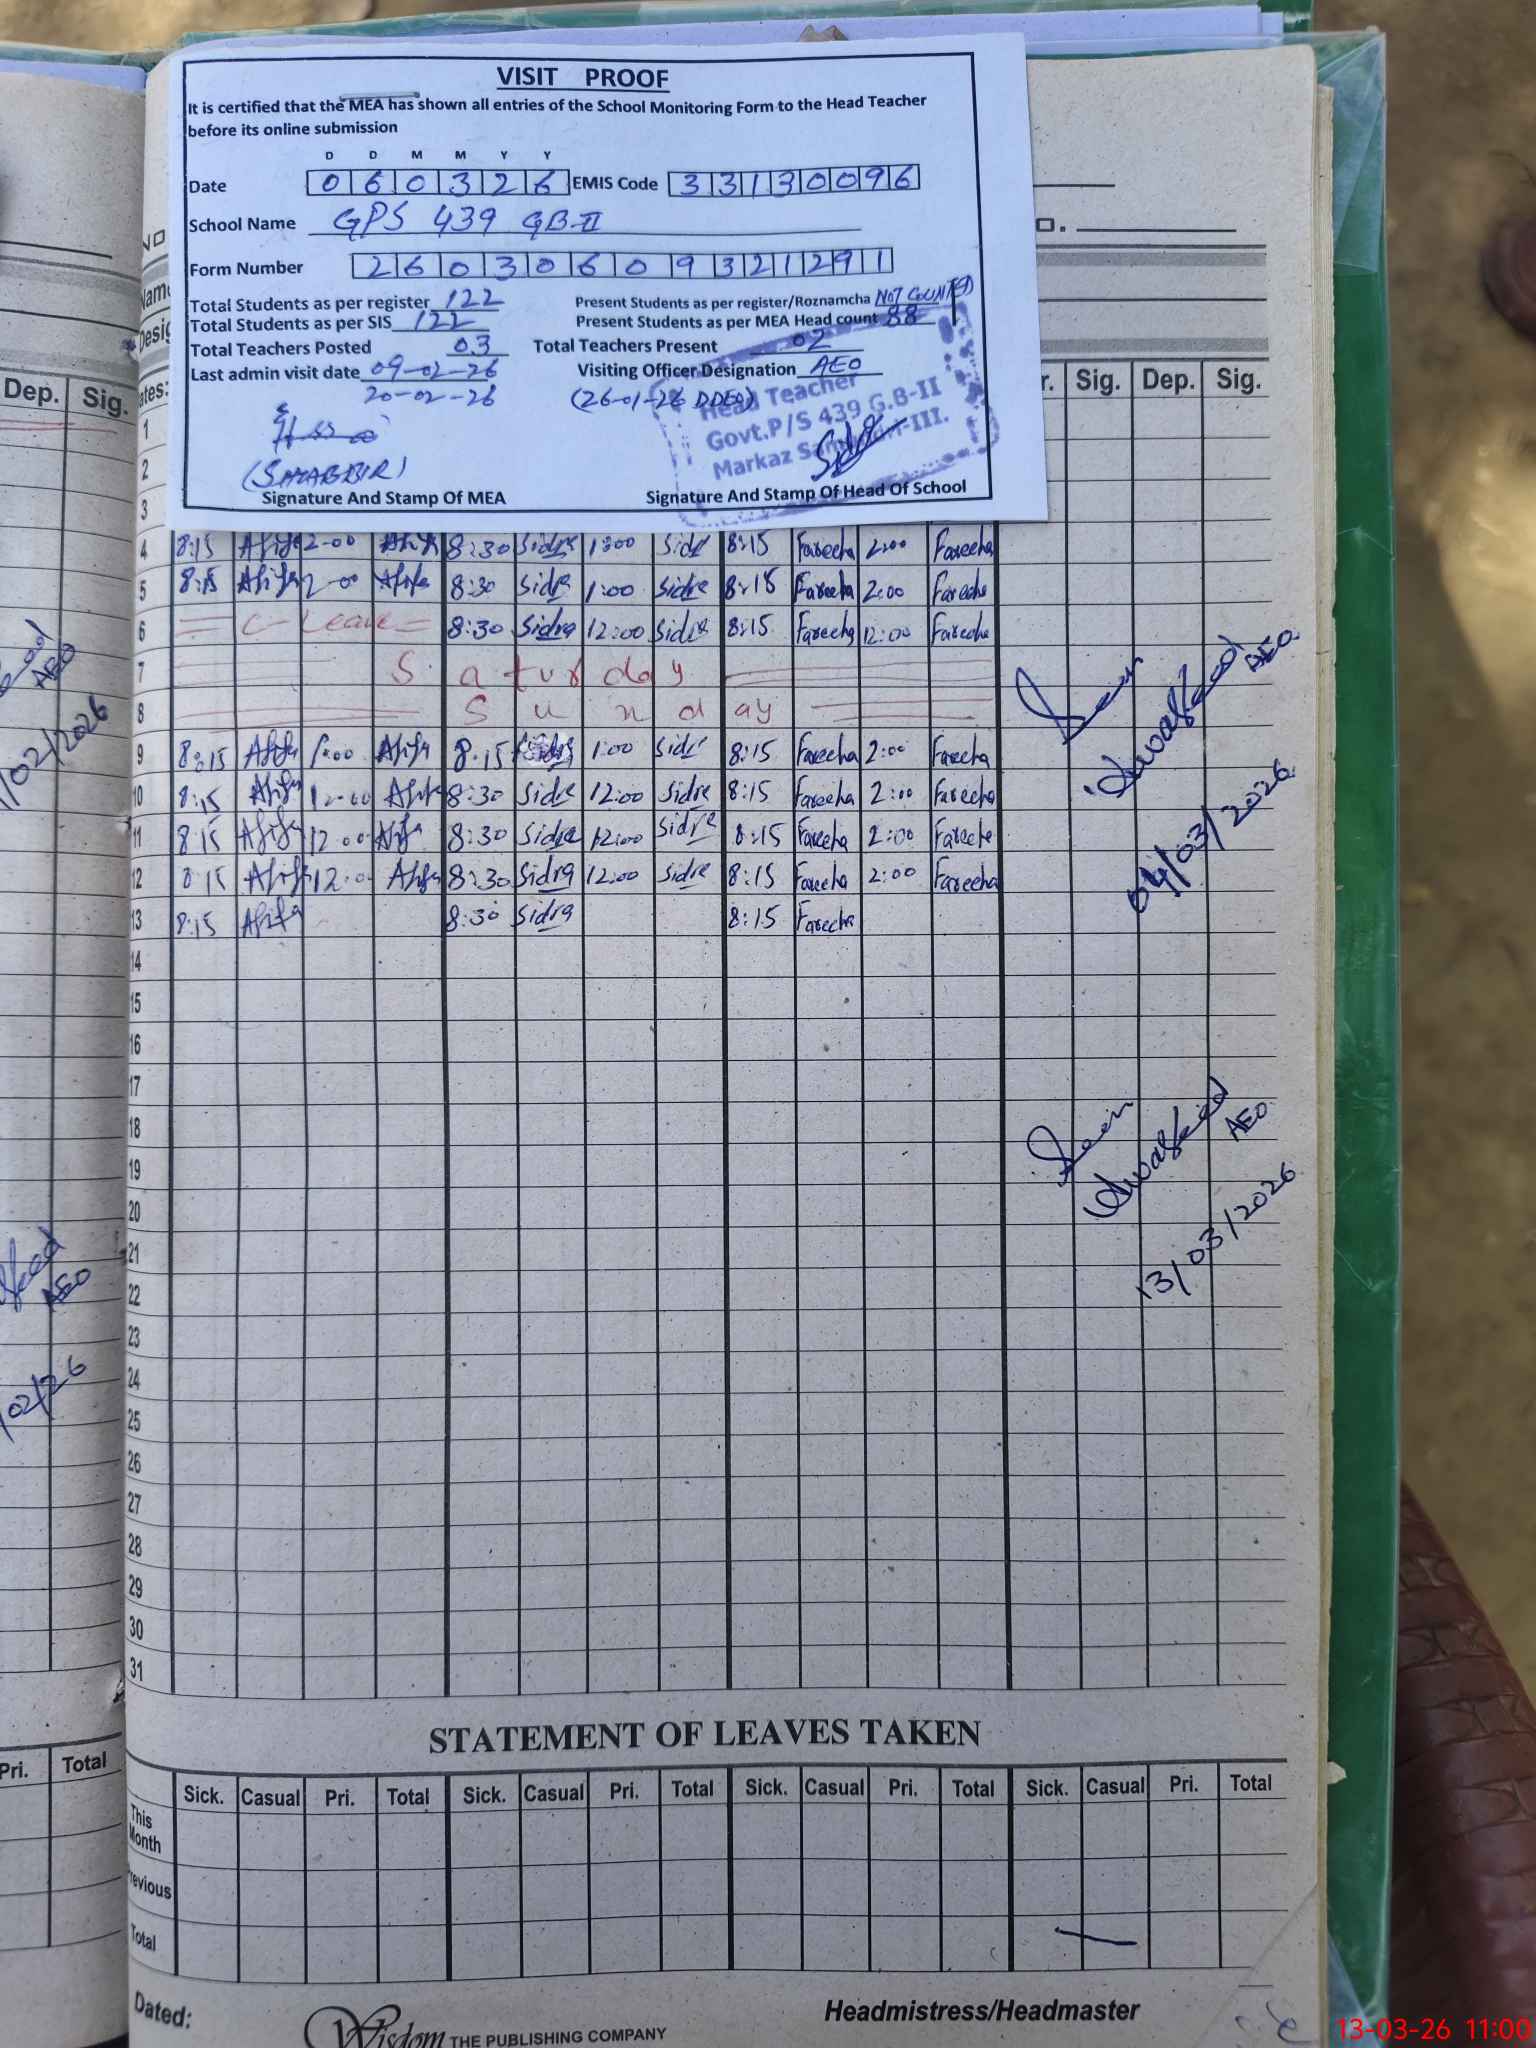 VISIT PROOF
It is certified that the MEA has shown all entries of the School Monitoring Form to the Head Teacher
before its online submission
D D M M Y Y
Date 060326 EMIS Code 33130096
School Name GPS 439 GB-II
Form Number 26030609321291
Total Students as per register 122 Present Students as per register/Roznamcha NOT COUNTED
Total Students as per SIS 122 Present Students as per MEA Head count 88
Total Teachers Posted 03 Total Teachers Present 02
Last admin visit date 09-02-26 Visiting Officer Designation AEO
20-02-26 (26-01-26 DDEO)
Head Teacher
Govt.P/S 439 G.B-II
Markaz -III.
(SHABBIR)
Signature And Stamp Of MEA Signature And Stamp Of Head Of School
Dep. Sig. Sig. Dep. Sig.
1
2
3
4 8:15 Afifa 2-00 Afifa 8:30 Sidra 1:00 Sidra 8:15 Fareeha 2:00 Fareeha
5 8:15 Afifa 2-00 Afifa 8:30 Sidra 1:00 Sidra 8:15 Fareeha 2:00 Fareeha
6 C-Leave 8:30 Sidra 12:00 Sidra 8:15 Fareeha 12:00 Fareeha
7 Saturday
8 Sunday
9 8:15 Afifa Afifa 8:15 Sidra 1:00 Sidra 8:15 Fareeha 2:00 Fareeha
10 8:15 Afifa 12-00 Afifa 8:30 Sidra 12:00 Sidra 8:15 Fareeha 2:00 Fareeha
11 8:15 Afifa 12:00 Afifa 8:30 Sidra 12:00 Sidra 8:15 Fareeha 2:00 Fareeha
12 8:15 Afifa 12:00 Afifa 8:30 Sidra 12:00 Sidra 8:15 Fareeha 2:00 Fareeha
13 8:15 Afifa 8:30 Sidra 8:15 Fareeha
Seen
AEO
04/03/2026
14
15
16
17
18
19
20
21
22
23
24
25
26
27
28
29
30
31
Seen
AEO
13/03/2026
AEO
/02/2026
AEO
/02/26
STATEMENT OF LEAVES TAKEN
Pri. Total
Sick. Casual Pri. Total Sick. Casual Pri. Total Sick. Casual Pri. Total Sick. Casual Pri. Total
This Month
Previous
Total
Dated:
Headmistress/Headmaster
Wisdom THE PUBLISHING COMPANY
13-03-26 11:00